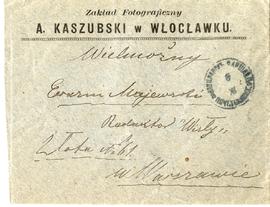 Zakład Fotograficzny
A. KASZUBSKI w WŁOCŁAWKU.
Wielmożny
Erazm Majewski
Redaktor "Wisły"
Złota
w Warszawie